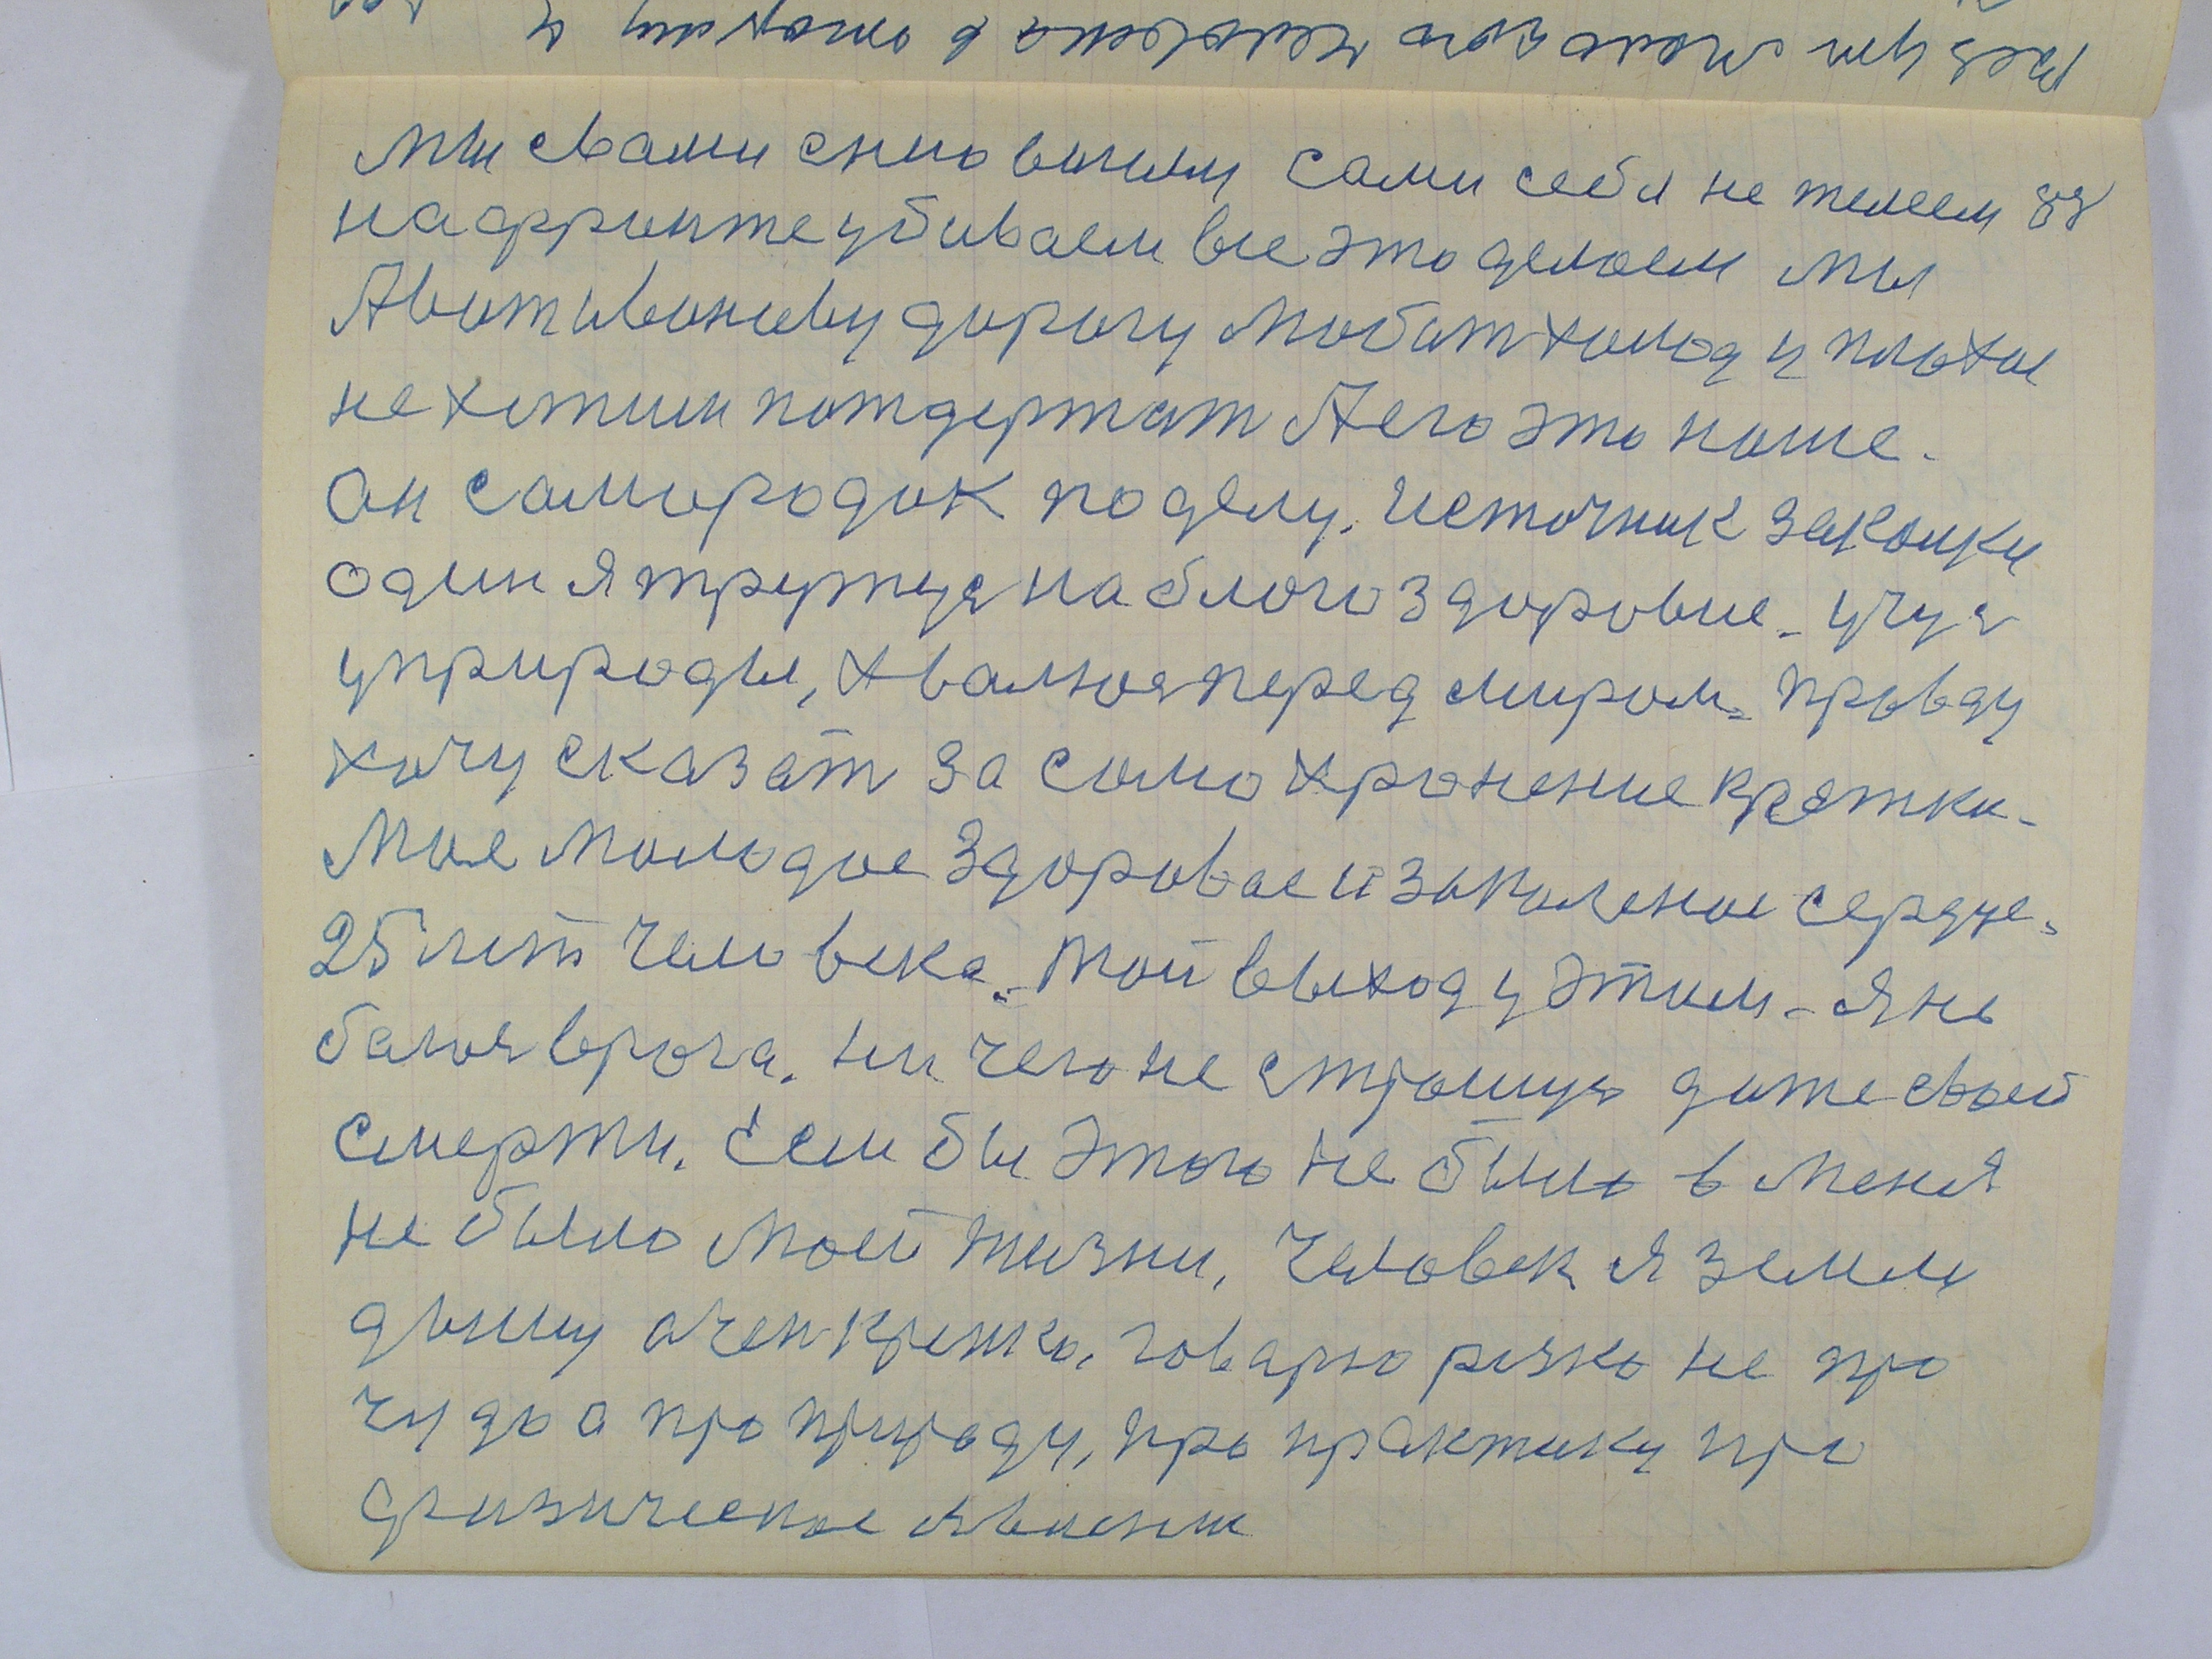 мы свами сново сами себя не желеем 88
на фронте убиваем все это делаем мы
А вот Иванову дорогу любит холод и плохое
не хотим потдержат А его это наше.
Он самородок по делу. источник закалки
один я тружус на благо здоровие. учуя
у природы, хвалюся перед миром. правду
хочу сказат за само хранение кратко.
Мое молодое здоровае и закаленое сердце.
25 лет человека. Мой выход у этим. я не
баюся врага. ни чего не страшус даже своей
смерти. Если бы этого не было в меня
не было моей жизни. Человек я земли
дышу очен крепко. говарю резко не про
чудо а про природу, про практику про
физическое явление